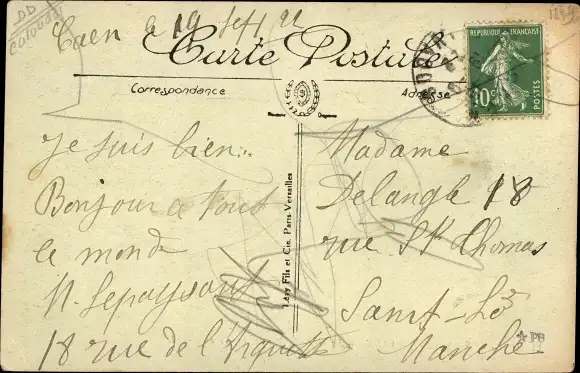 DD
Calvados
Caen a 19 Sept 22
Carte Postale
Correspondance
Adresse
REPUBLIQUE FRANÇAISE
10c
POSTES
Je suis bien.
Bonjour a tout
le monde
Lévy Fils et Cie. Paris-Versailles
18 rue de
Madame
Delangle 18
rue St Thomas
Saint-Lô
Manche